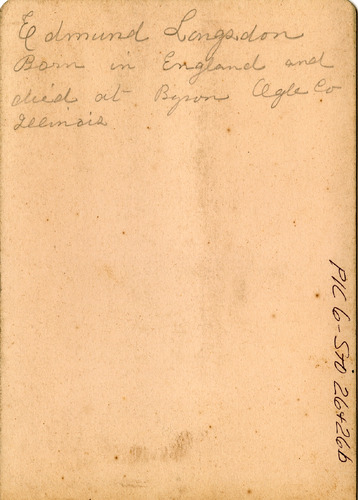 Edmund Longsdon
Born in England and
died at Byron Ogle Co
Illinois
PIC 6-Sto 26+26b